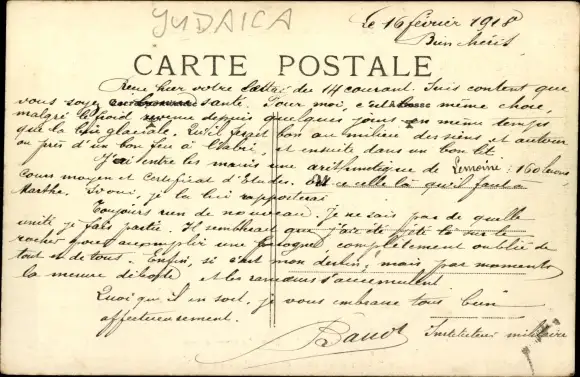 JUDAICA
Le 16 février 1918
Bien chéris,
CARTE POSTALE
Reçu hier votre lettre du 14 courant. Suis content que
vous soyez en bonne santé. Pour moi, c'est même chose,
malgré le froid revenu depuis quelques jours en même temps
que la bise glaciale. Qu'il ferait bon au milieu des siens et autour
ou près d'un bon feu à l'abri, et ensuite dans un bon lit.
J'ai entre les mains une arithmétique de Lemoine : 160 leçons
Cours moyen et Certificat d'Etudes. Est ce celle là qu'il faut à
Marthe. Si oui, je la lui rapporterai
Toujours rien de nouveau. Je ne sais pas de quelle
unité je fais partie. Il semblerait que j'ai été jeté là sur le
rocher pour accomplir une complètement oublié de
tout et de tous. Enfin, si c'est mon destin, mais par moments
la mesure déborde et les s'accumulent
Quoi qu'il en soit, je vous embrasse tous bien
affectueusement.
Instituteur militaire